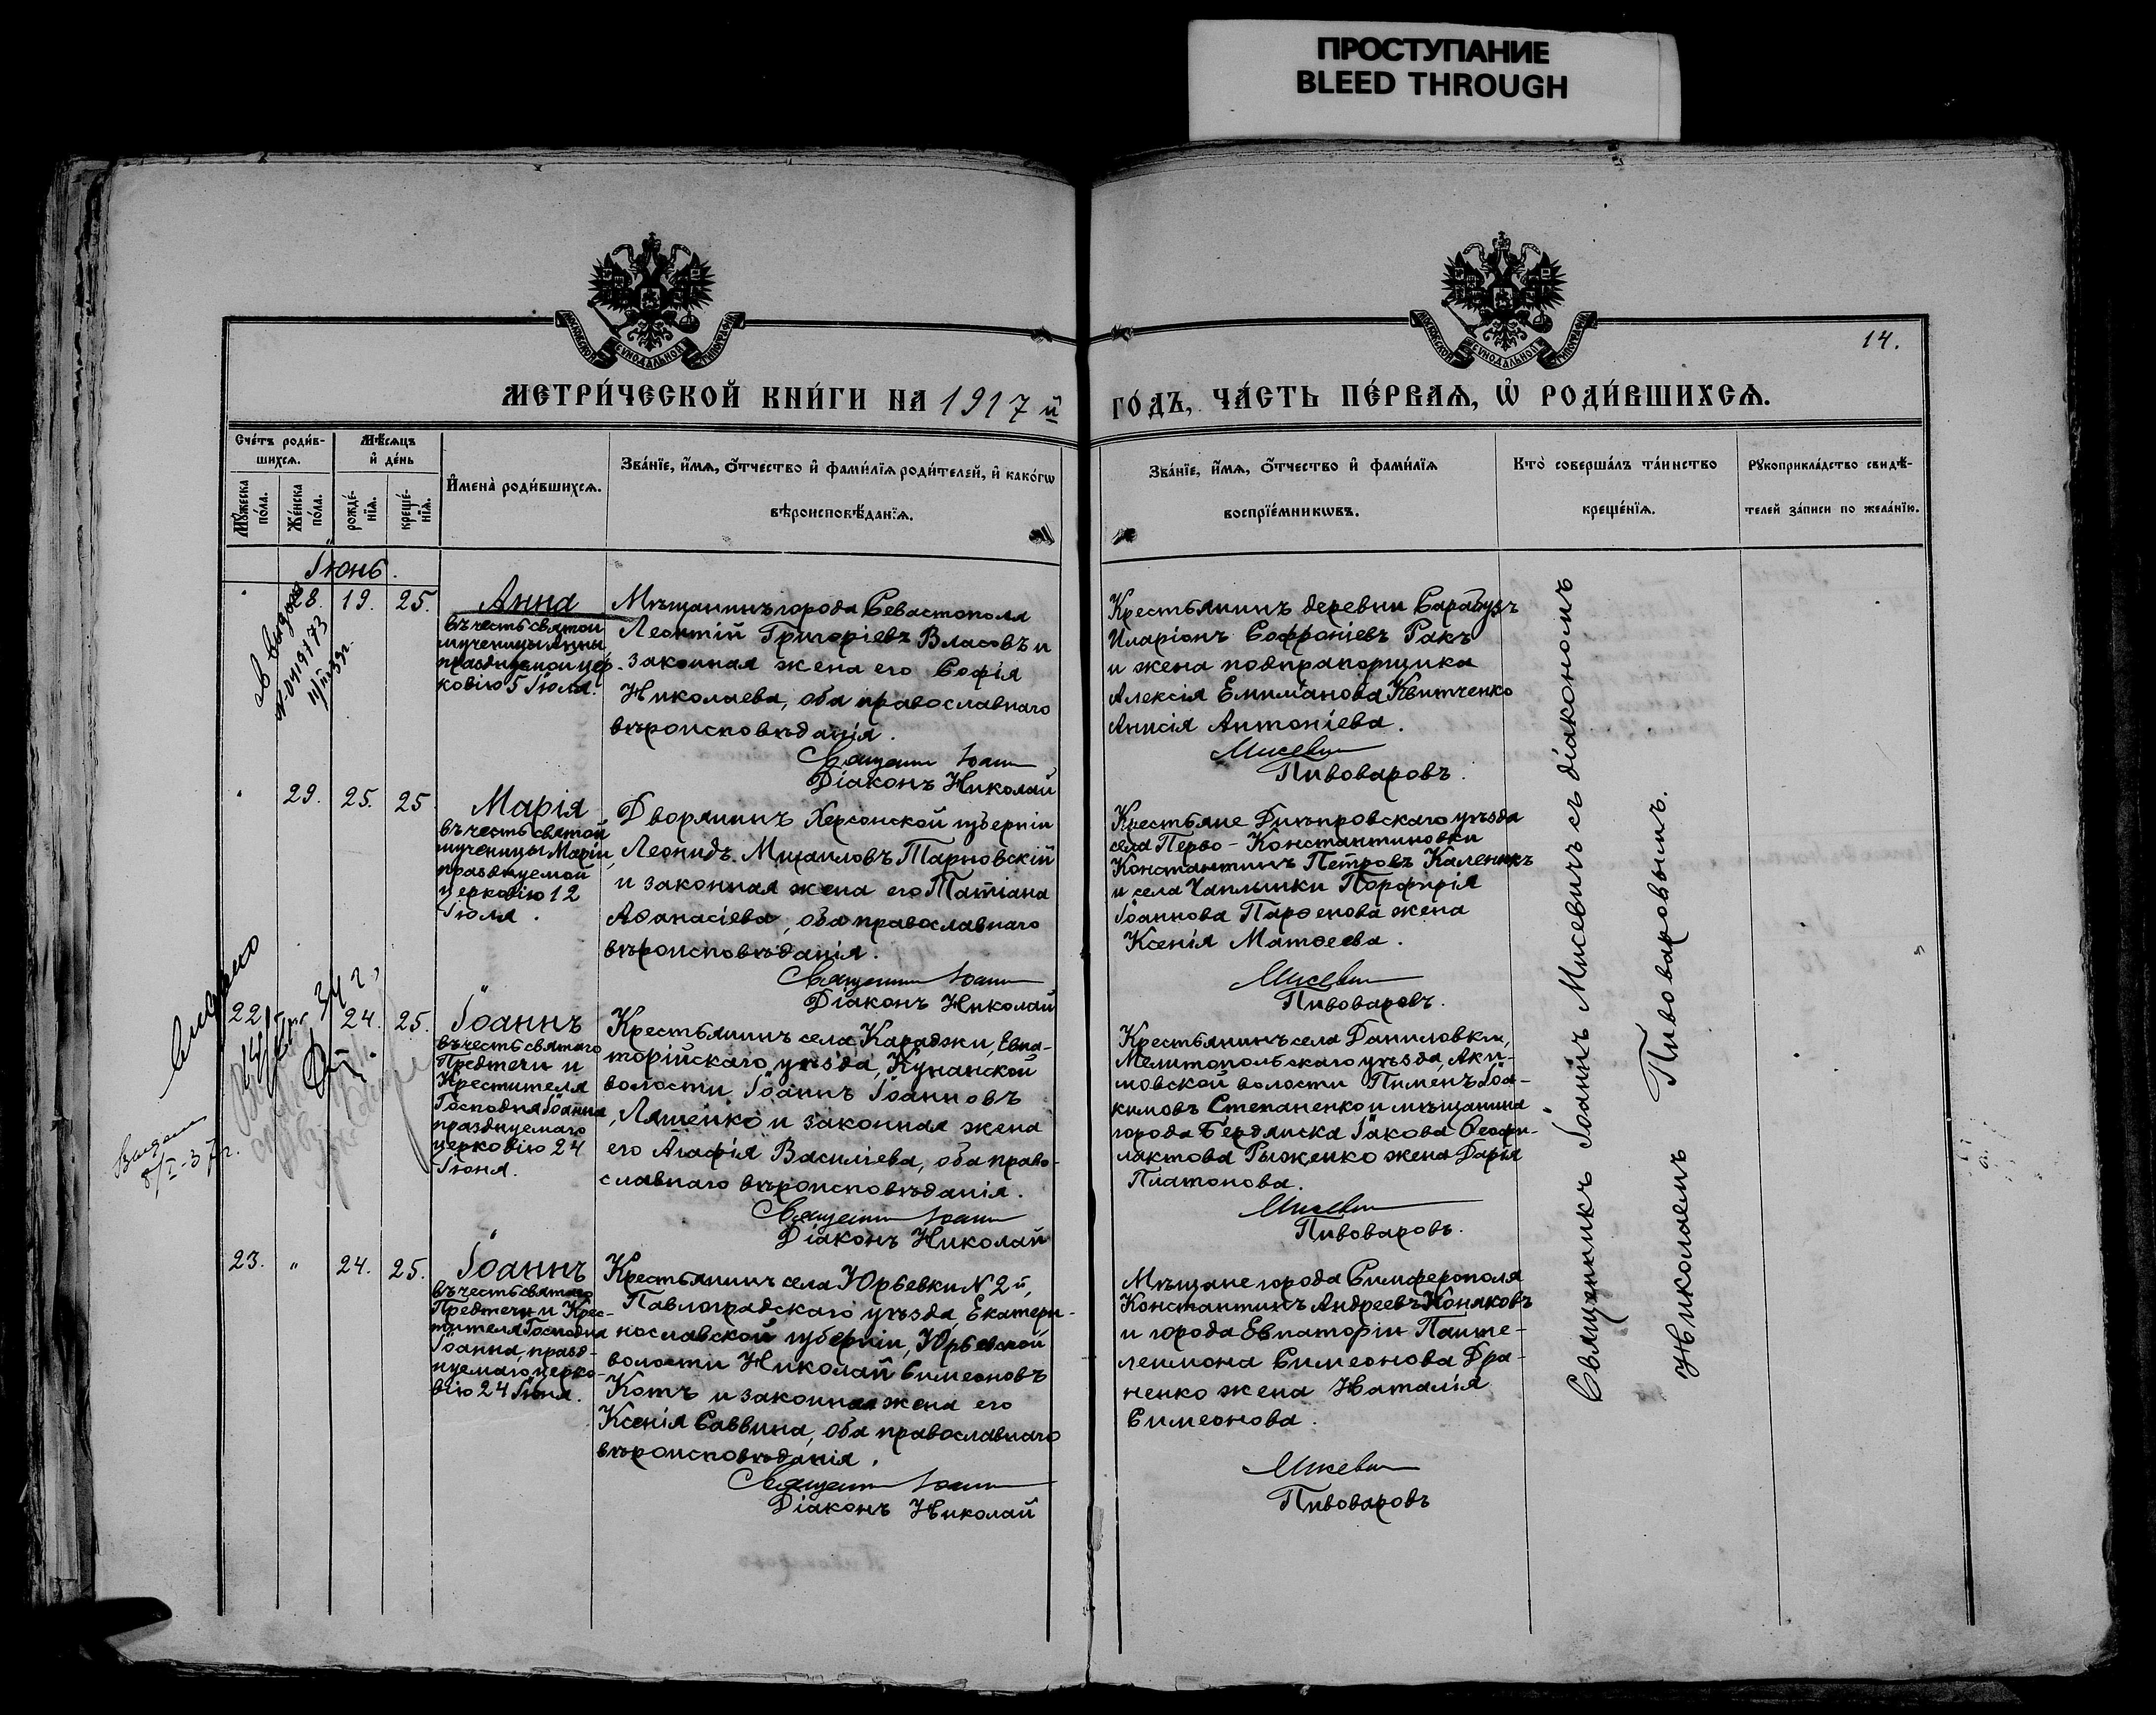 ПРОСТУПАНИЕ
BLEED THROUGH
МОСКОВСКОЙ СѴНОДАЛЬНОЙ ТИПОГРАФІИ
МОСКОВСКОЙ СѴНОДАЛЬНОЙ ТИПОГРАФІИ
14.
МЕТРИ́ЧЕСКОЙ КНИ́ГИ НА 1917 й
ГО́ДЪ, ЧА́СТЬ ПЕ́РВАѦ, Ѡ҆ РОДИ́ВШИХСѦ.
Сче́тъ роди́в-
шихсѧ.
Мѣ́сѧцъ
и҆ де́нь
Мꙋ́жеска
по́ла.
Же́нска
по́ла.
рожде́-
нїѧ.
креще́-
нїѧ.
И҆мена̀ роди́вшихсѧ.
Зва́нїе, и҆́мѧ, ѻ҆́тчество и҆ фами́лїѧ роди́телей, и҆ како́гѡ
вѣроисповѣ́данїѧ.
Зва́нїе, и҆́мѧ, ѻ҆́тчество и҆ фами́лїѧ
воспрїе́мникѡвъ.
Кто̀ соверша́лъ та́инство
креще́нїѧ.
Рꙋкоприкла́дство свидѣ́-
телей за́писи по жела́нїю.
Іюнь.
28. 19. 25.
Анна
въ честь святой
мученицы Анны,
празднуемой цер-
ковію 5 Іюля.
Мѣщанинъ города Севастополя
Леонтій Григоріевъ Власовъ и
законная жена его Софія
Николаева, оба православнаго
вѣроисповѣданія.
Священн Іоанн
Діаконъ Николай
Крестьянинъ деревни Сарабузъ
Иларіонъ Софроніевъ Ракъ
и жена подпрапорщика
Алексія Емиліанова Квитченко
Анисія Антоніева.
Мисевич
Пивоваровъ.
29. 25. 25
Марія
въ честь святой
мученицы Маріи,
празднуемой
церковію 12
Іюля.
Дворянинъ Херсонской губерніи
Леонидъ Михаиловъ Тарновскій
и законная жена его Татіана
Аѳанасіева, оба православнаго
вѣроисповѣданія.
Священн Іоанн
Діаконъ Николай
Крестьяне Днѣпровскаго уѣзда
села Перво-Константиновки
Константинъ Петровъ Каленикъ
и села Чаплынки Порфирія
Іоаннова Парѳенова жена
Ксенія Матѳеева.
Мисевич
Пивоваровъ.
22. 24. 25.
Іоаннъ
въ честь святаго
Предтечи и
Крестителя
Господня Іоанна,
празднуемаго
церковію 24
Іюня.
Крестьянинъ села Караджи, Евпа-
торійскаго уѣзда, Кунанской
волости Іоаннъ Іоанновъ
Ляшенко и законная жена
его Агафія Василіева, оба право-
славнаго вѣроисповѣданія.
Священн Іоанн
Діаконъ Николай
Крестьянинъ села Даниловки,
Мелитопольскаго уѣзда, Аки-
мовской волости Пименъ Іоа-
кимовъ Степаненко и мѣщанина
города Бердянска Іакова Ѳеофи-
лактова Рыженко жена Дарія
Платонова.
Мисевич
Пивоваровъ.
23. " 24. 25.
Іоаннъ
въ честь святаго
Предтечи и Крес-
тителя Господня
Іоанна, празд-
нуемаго церко-
вію 24 Іюня.
Крестьянинъ села Юрьевки N 2й,
Павлоградскаго уѣзда, Екатери-
нославской губерніи, Юрьевской
волости Николай Симеоновъ
Котъ и законная жена его
Ксенія Саввина, оба православнаго
вѣроисповѣданія.
Священн Іоанн
Діаконъ Николай
Мѣщане города Симферополя
Константинъ Андреевъ Коняковъ
и города Евпаторіи Панте-
леимона Симеонова Дра-
ненко жена Наталія
Симеонова.
Мисевич
Пивоваровъ
Священникъ Іоаннъ Мисевичъ съ діакономъ
Николаемъ Пивоваровымъ.
N 019173
34 г.
8/I-37г.